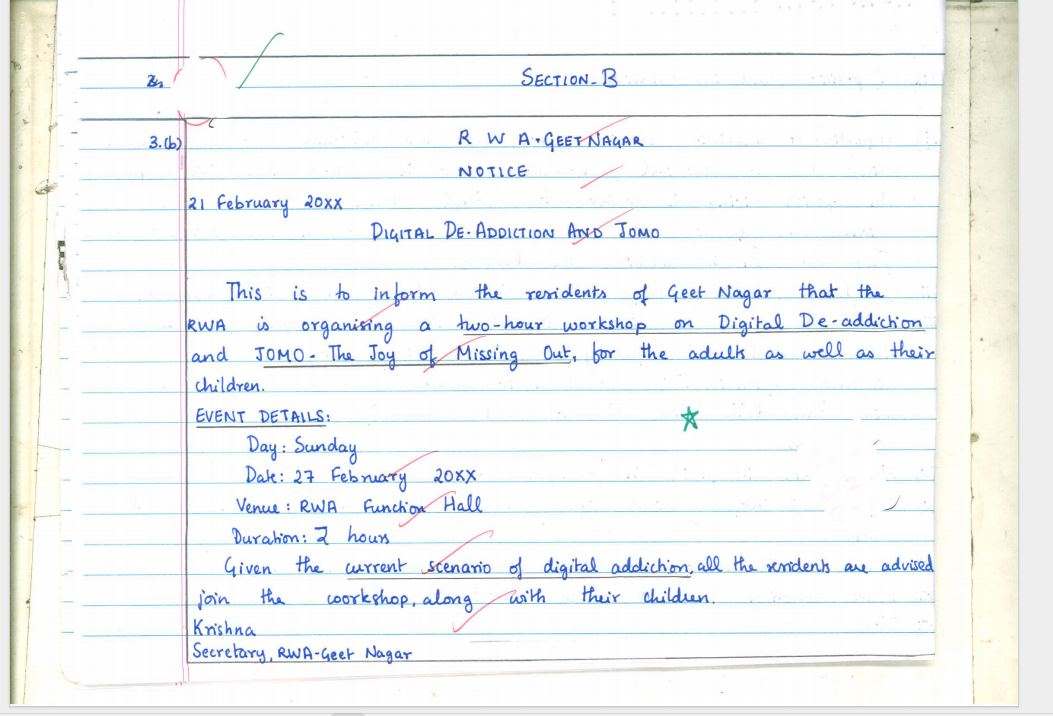 SECTION-B
3.(b)
R W A-GEET NAGAR
NOTICE
21 February 20XX
DIGITAL DE-ADDICTION AND JOMO
This is to inform the residents of Geet Nagar that the
RWA is organising a two-hour workshop on Digital De-addiction
and JOMO - The Joy of Missing Out, for the adults as well as their
children.
EVENT DETAILS:
Day: Sunday
Date: 27 February 20XX
Venue: RWA Function Hall
Duration: 2 hours
Given the current scenario of digital addiction, all the residents are advised
join the workshop, along with their children.
Krishna
Secretary, RWA-Geet Nagar